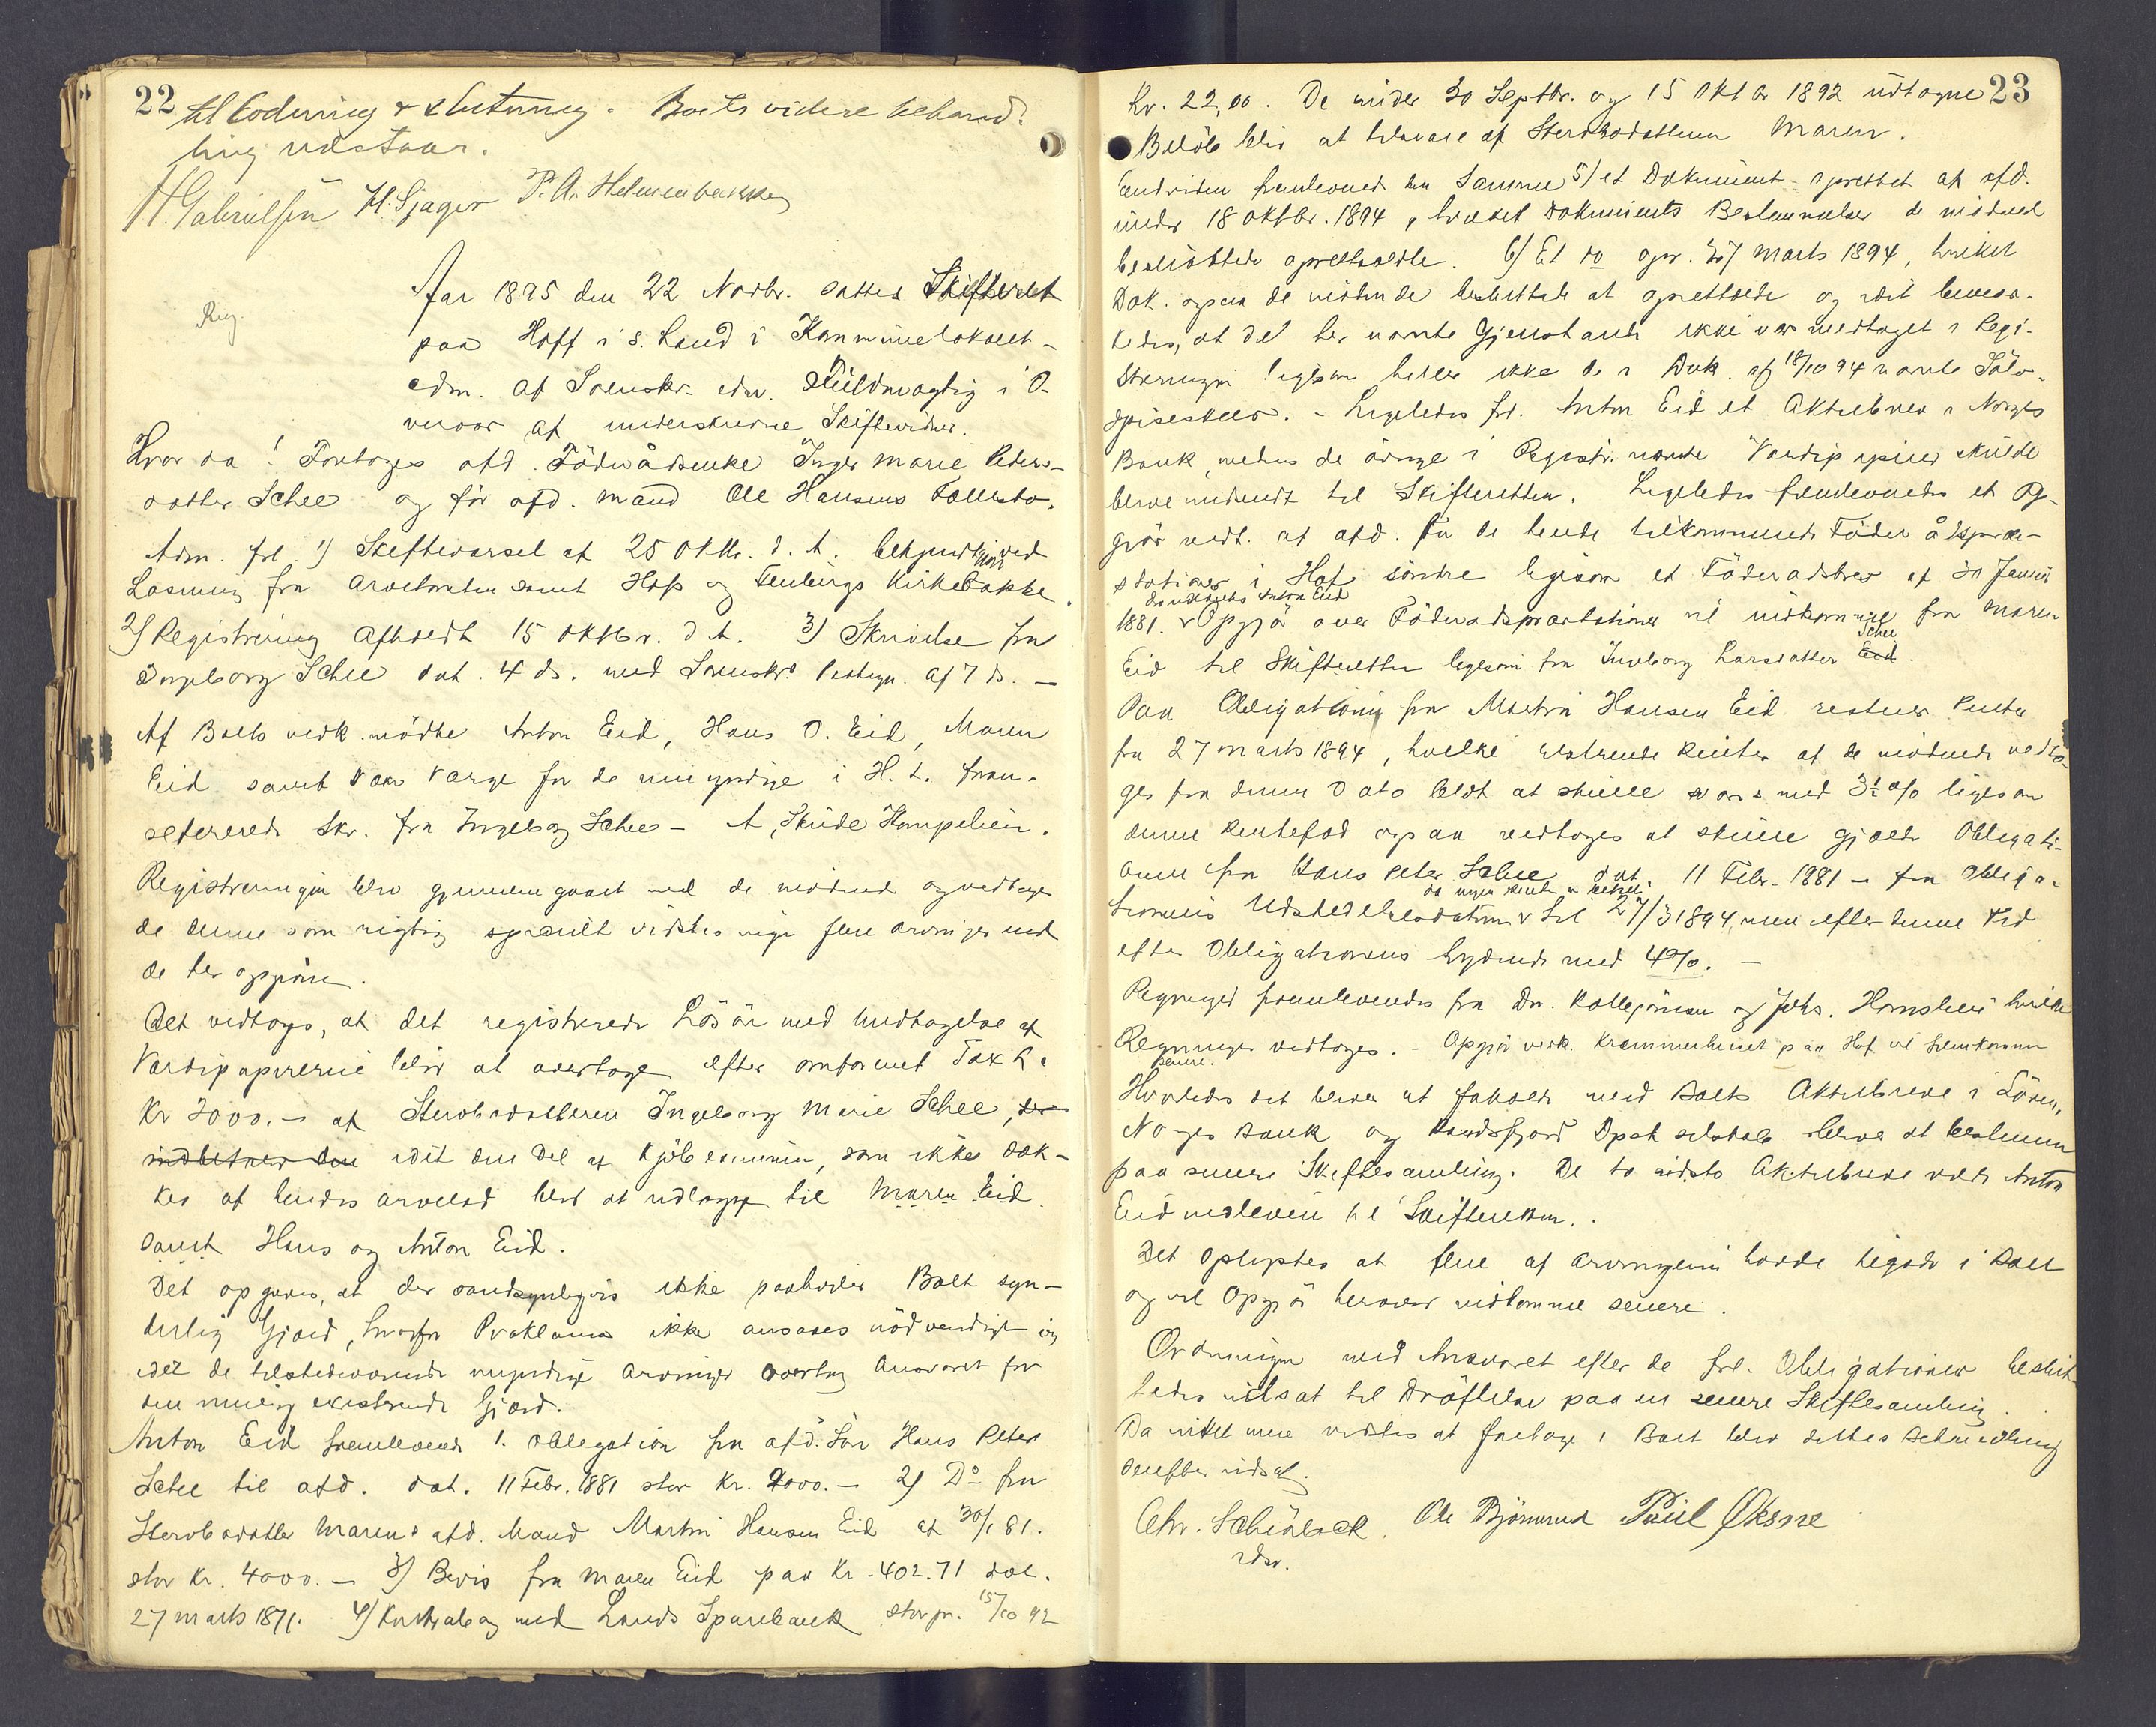 22
til Lodning & Slutning. Boets videre behand-
ling udstaar.
H. Gabrielsen H. Sjager P. A. Helmenbakken
Reg.
Aar 1895 den 22 Novbr. sattes Skifteret
paa Hoff i S. Land i Kommunelokalet
adm. af Sorenskr. edsv. Fuldmægtig i O-
vervær af underskrevne Skiftevidner.
Hvor da! Foretoges afd. Föderådsenke Inger Marie Peders-
datter Schee og för afd. mand Ole Hansens Fællesbo.
Adm. frl. 1) Skiftevarsel af 25 Oktbr. d. A. bekjendtgjort ved
Læsning fra samt Hoff og Fluberg Kirkebakke.
2) Registrering afholdt 15 Oktbr. d A. 3) Skrivelse fra
Ingeborg Schee dat. 4 ds. med Sorenskr.s Paategn. af 7 ds. —
Af Boets vedk. mödte Anton Eid, Hans O. Eid, Maren
Eid samt som Værge for de umyndige i H. t. frem-
refererede Skr. fra Ingeborg Schee – A. Skude Hempelien.
Registreringen blev gjennemgaaet med de mödende og vedtoges
de denne som rigtig specielt vidstes ingen flere arvinger end
de her opgivne.
Det vedtoges, at det registrerede Lösöre med Undtagelse af
Værdipapirerne blev at overtage efter omforenet Taxt
Kr 2000.– af Sterbodatteren Ingeborg Marie Schee, der
indbetaler den idet den Del af Kjöbesummen, som ikke dæk-
kes af hendes arvelod blev at udlægge til Maren Eid
samt Hans og Anton Eid.
Det opgaves, at der sandsynligvis ikke paahviler Boet syn-
derlig Gjæld, hvorfor Proklama ikke ansaaes nödvendigt
idet de tilstedeværende myndige arvinger overtog Ansvaret for
den mulig existerende Gjæld.
Anton Eid fremlevered 1. Obligation fra afd. Sön Hans Peter
Schee til afd. dat. 11 Febr. 1881 stor Kr. 2000.– 2) Do fra
Sterbodatter Marens afd. Mand Martin Hansen Eid af 30/1 81.
stor Kr. 4000. – 3) Bevis fra Maren Eid paa Kr. 402.71 dat.
27 marts 1871. 4) Kontrabog med Lands Sparebank stor pr. 15/10 92
23
Kr. 22,00. De under 30 Septbr. og 15 Oktbr 1892 udtagne
Belöb blev at tilsvare af Sterbodatteren Maren.
Endvidere fremlevered den Samme 5) et Dokument oprettet af afd.
under 18 Oktbr. 1894, hvilket Dokuments Bestemmelser de mödende
besluttede opretholdte. 6) Et do opr. 27 Marts 1894, hvilket
Dok. ogsaa de mödende besluttede at opretholde og idet bemær-
kedes, at det her nævnte Gjenstande ikke var medtaget i Regi-
streringen ligesom heller ikke de i Dok. af 18/10 94 nævnte Sölv-
spiseskeer. – Ligeledes frl. Anton Eid et Aktiebrev i Norges
Bank, medens de övrige i Registr. nævnte Værdipapirer skulde
blive indsendt til Skifteretten. Ligeledes fremlevertes et Op-
gjör vedk. af afd. fra de hende tilkommende Föderådspræ-
stationer i Hof söndre ligesom et Föderådsbrev af 20 Januar
1881. Opgjör over Föderådspræstationer vil indkomme fra Maren
Eid til Skifteretten ligesom fra Ingeborg Larsdatter Eid Schee.
Paa Obligationen fra Martin Hansen Eid resterer Renter
fra 27 marts 1894, hvilke resterende Renter af de mödende vedto-
ges fra denne Dato beldt at skulle svares med 3½ % ligesom
denne Rentefod ogsaa vedtoges at skulle gjælde Obligati-
onen fra Hans Peter Schee dat. 11 Febr. 1881 – fra Obliga-
tionens Udstedelsesdatum da ingen Rente er betalt til 27/3 1894, men efter denne Tid
efter Obligationens Lydende med 4%. –
Regninger fremlevertes fra Dr. Kolbjörnsen og Johs. Homslien hvilke
Regninger vedtoges. – Opgjör vedk. Krammerhuset paa Hof vil fremkomme
senere.
Hvorledes det bliver at forholde med Boets Aktiebreve i Löven,
Norges Bank og Randsfjord Dpsk selskab blive at bestemme
paa senere Skiftesamling. De to sidste Aktiebreve vilde Anton
Eid indlevere til Skifteretten.
Det oplystes at flere af arvingerne havde tilgode i Boet
og vil Opgjör herover indkomme senere.
Ordningen med Ansvaret efter de frl. Obligationer beslut-
tedes udsat til Dröftelse paa en senere Skiftesamling.
Da intet mere vidstes at foretage i Boet blev dettes Behandling
derefter udsat.
Chr. Schiölack. Ole Björnerud Paul Øksne
edsv.